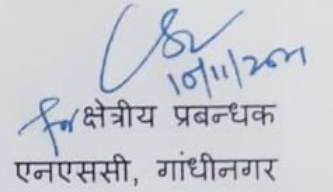 10/11/2021
for क्षेत्रीय प्रबन्धक
एनएससी, गांधीनगर